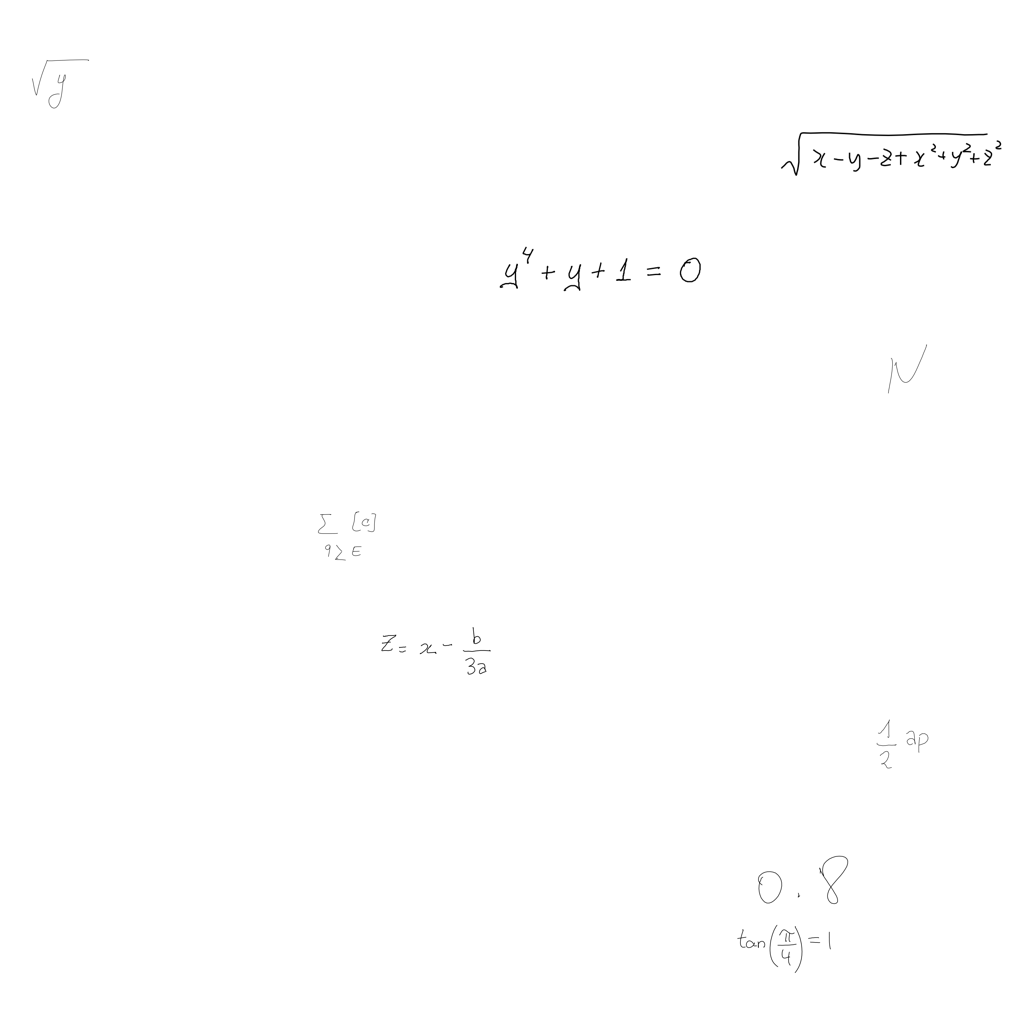 √y
√(x-y-z+x²+y²+z²)
y⁴+y+1=0
N
∑ [a]
q∑E
z=x-b/3a
1/2 ap
0.8
tan(π/4)=1